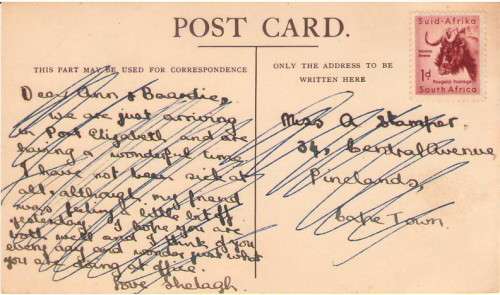 POST CARD.
THIS PART MAY BE USED FOR CORRESPONDENCE
ONLY THE ADDRESS TO BE
WRITTEN HERE
Suid-Afrika
1d
Posgeld Postage
South Africa
Dear Ann &
We are just arriving
in Port Elizabeth and are
having a wonderful time.
I have not been sick at
all, although my friend
was feeling a little bit off
yesterday. I hope you are
both well and I think of you
every day and wonder just what
you are doing at office.
Love Shelagh.
Miss A Stamper.
34, Central Avenue
Pinelands,
Cape Town.